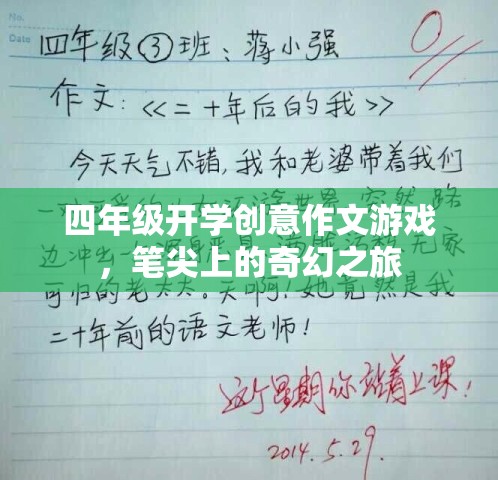 No.
Date
四年级③班：蒋小强
0
作文：<<二十年后的我>>
今天天气不错，我和老婆带着我们
一
路
四年级开学创意作文游戏
，笔尖上的奇幻之旅
边冲出一
无家
可归的老太太。天啊！她竟然是我
二十年前的语文老师！
这个星期你站着上课！
2014.5.29.